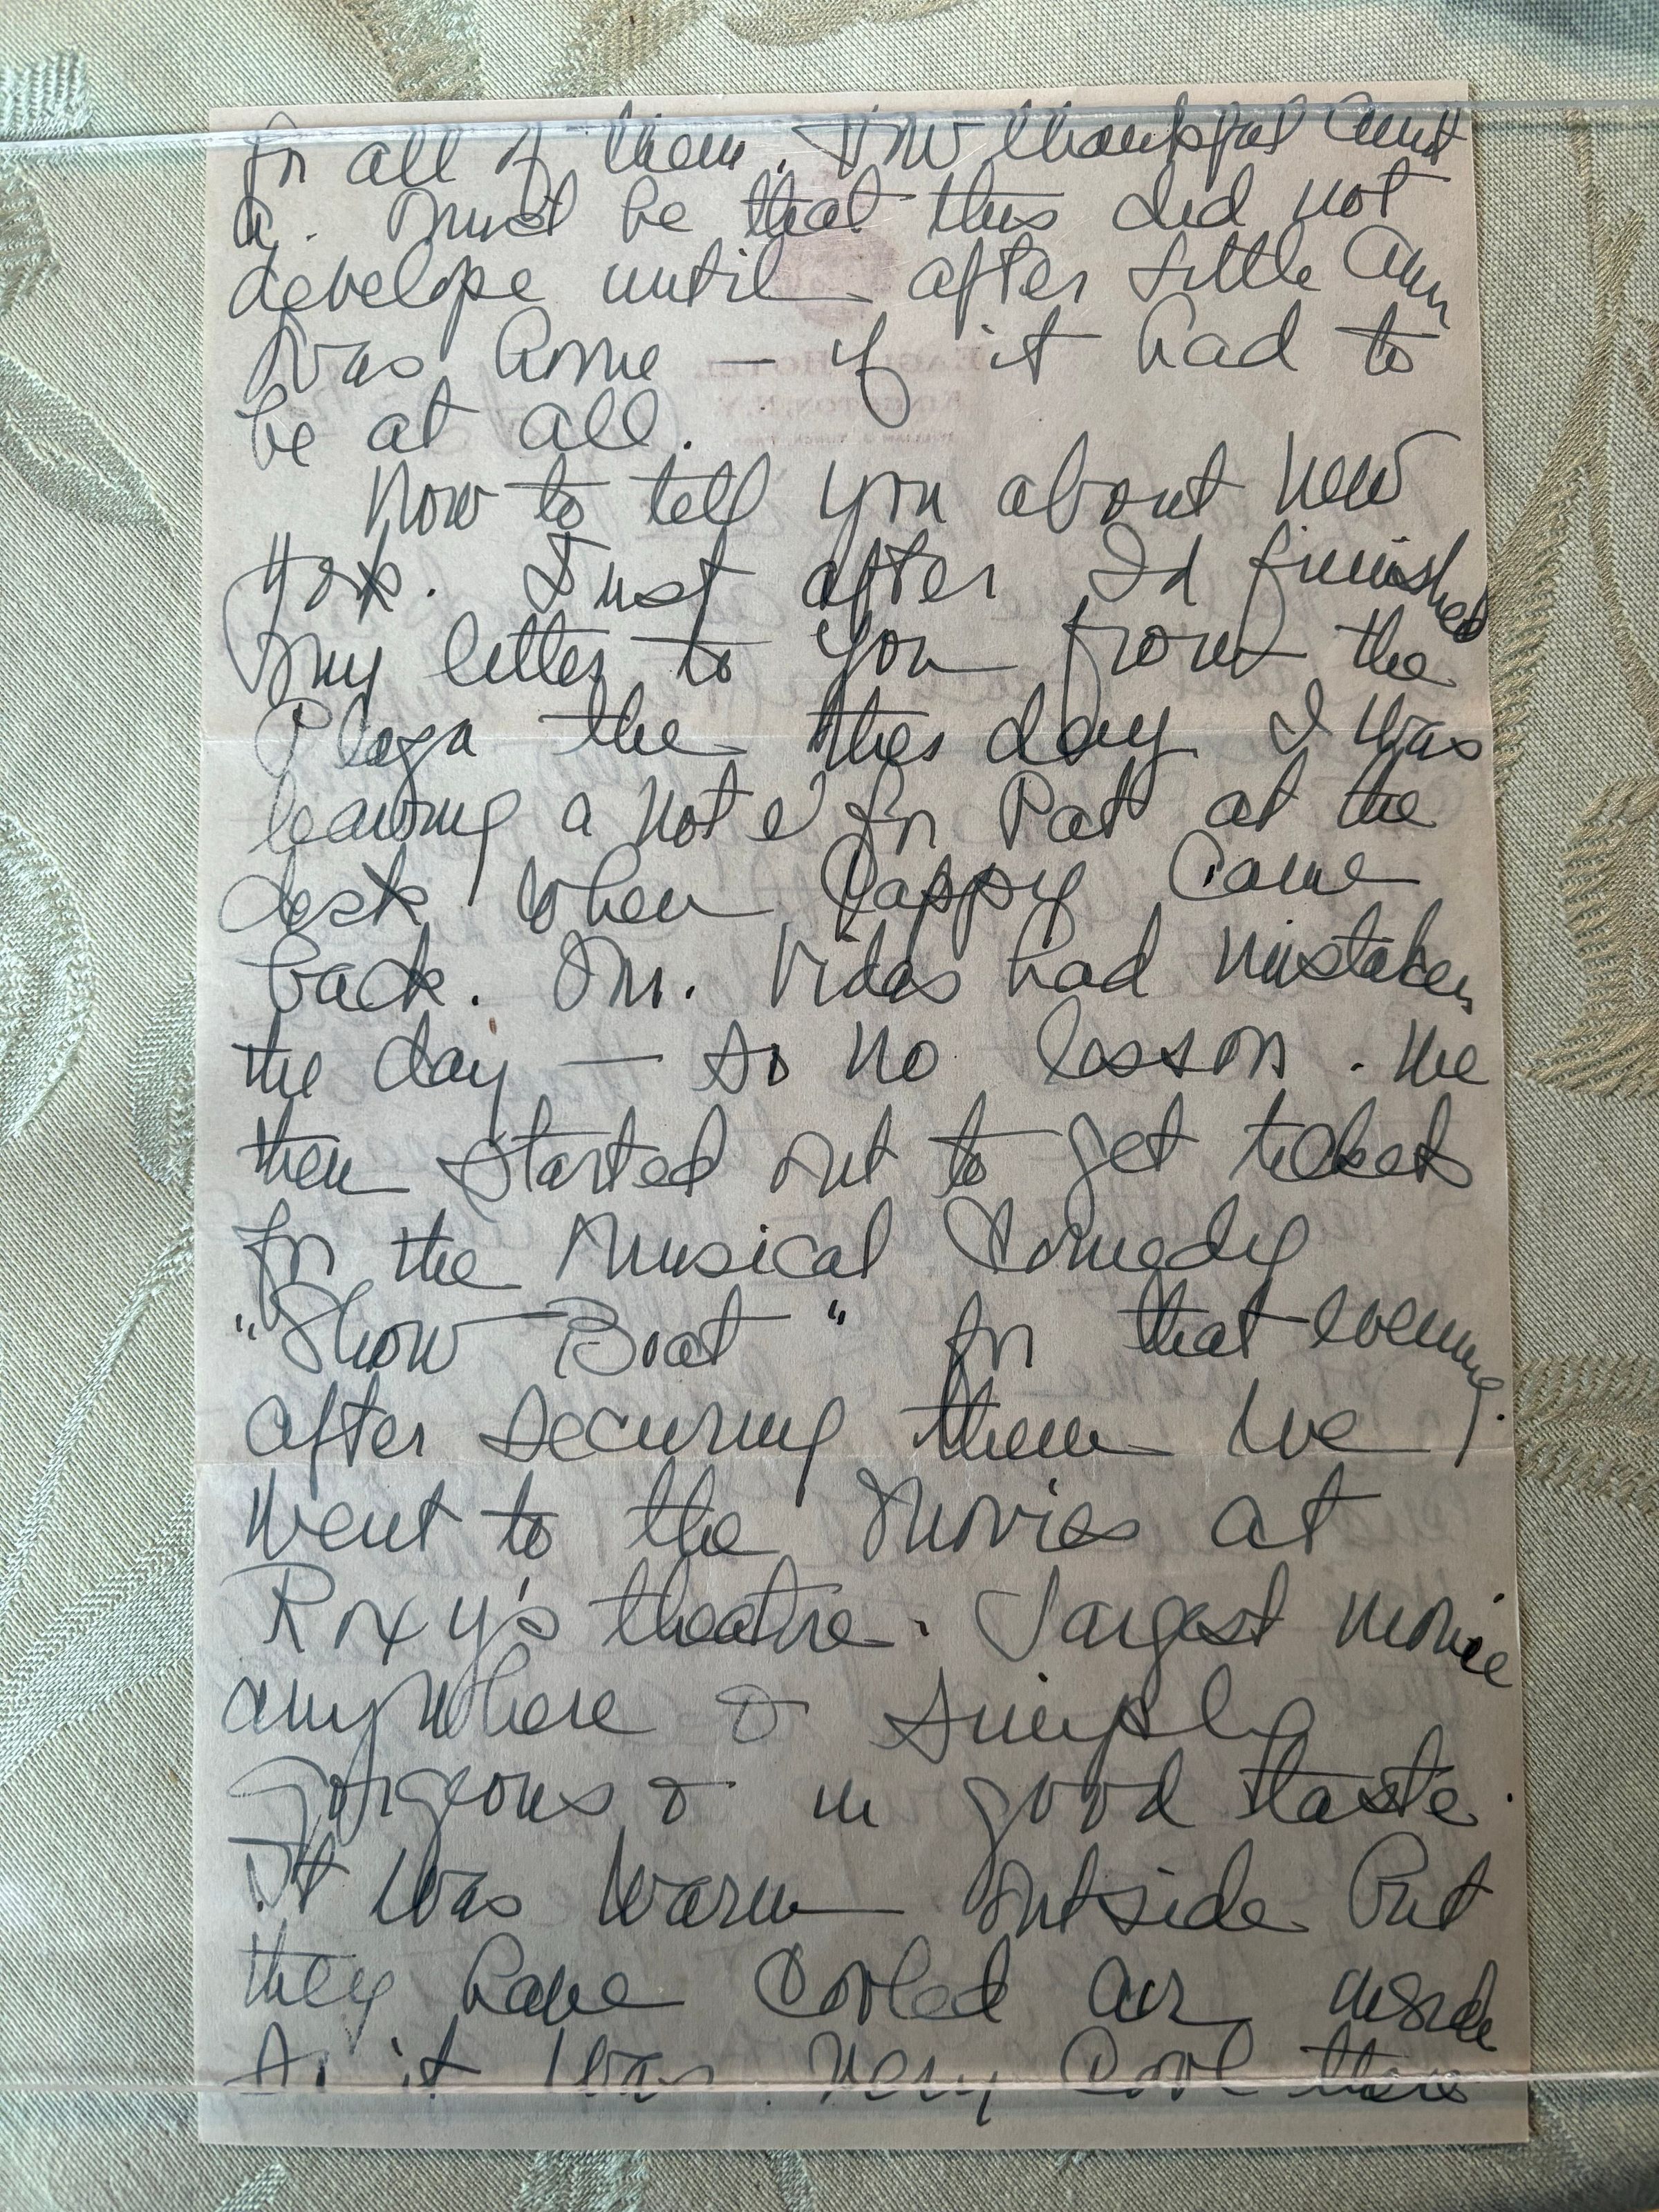 for all of them. How thankful Aunt
A. must be that this did not
develope until after little Ann
was home – if it had to
be at all.
Now to tell you about New
York. Just after I'd finished
my letter to you from the
Plaza the other day I was
leaving a note for Pat at the
desk when Pappy came
back. Mr. Vidas had mistaken
the day – so no lesson. We
then started out to get tickets
for the Musical Comedy
"Show Boat" for that evening.
after securing them we
went to the movies at
Roxy's theatre. Largest movie
anywhere & simply
gorgeous & in good taste.
It was warm outside but
they have cooled air inside
so it was very cool there
EAGLE HOTEL
KINGSTON, N.Y.